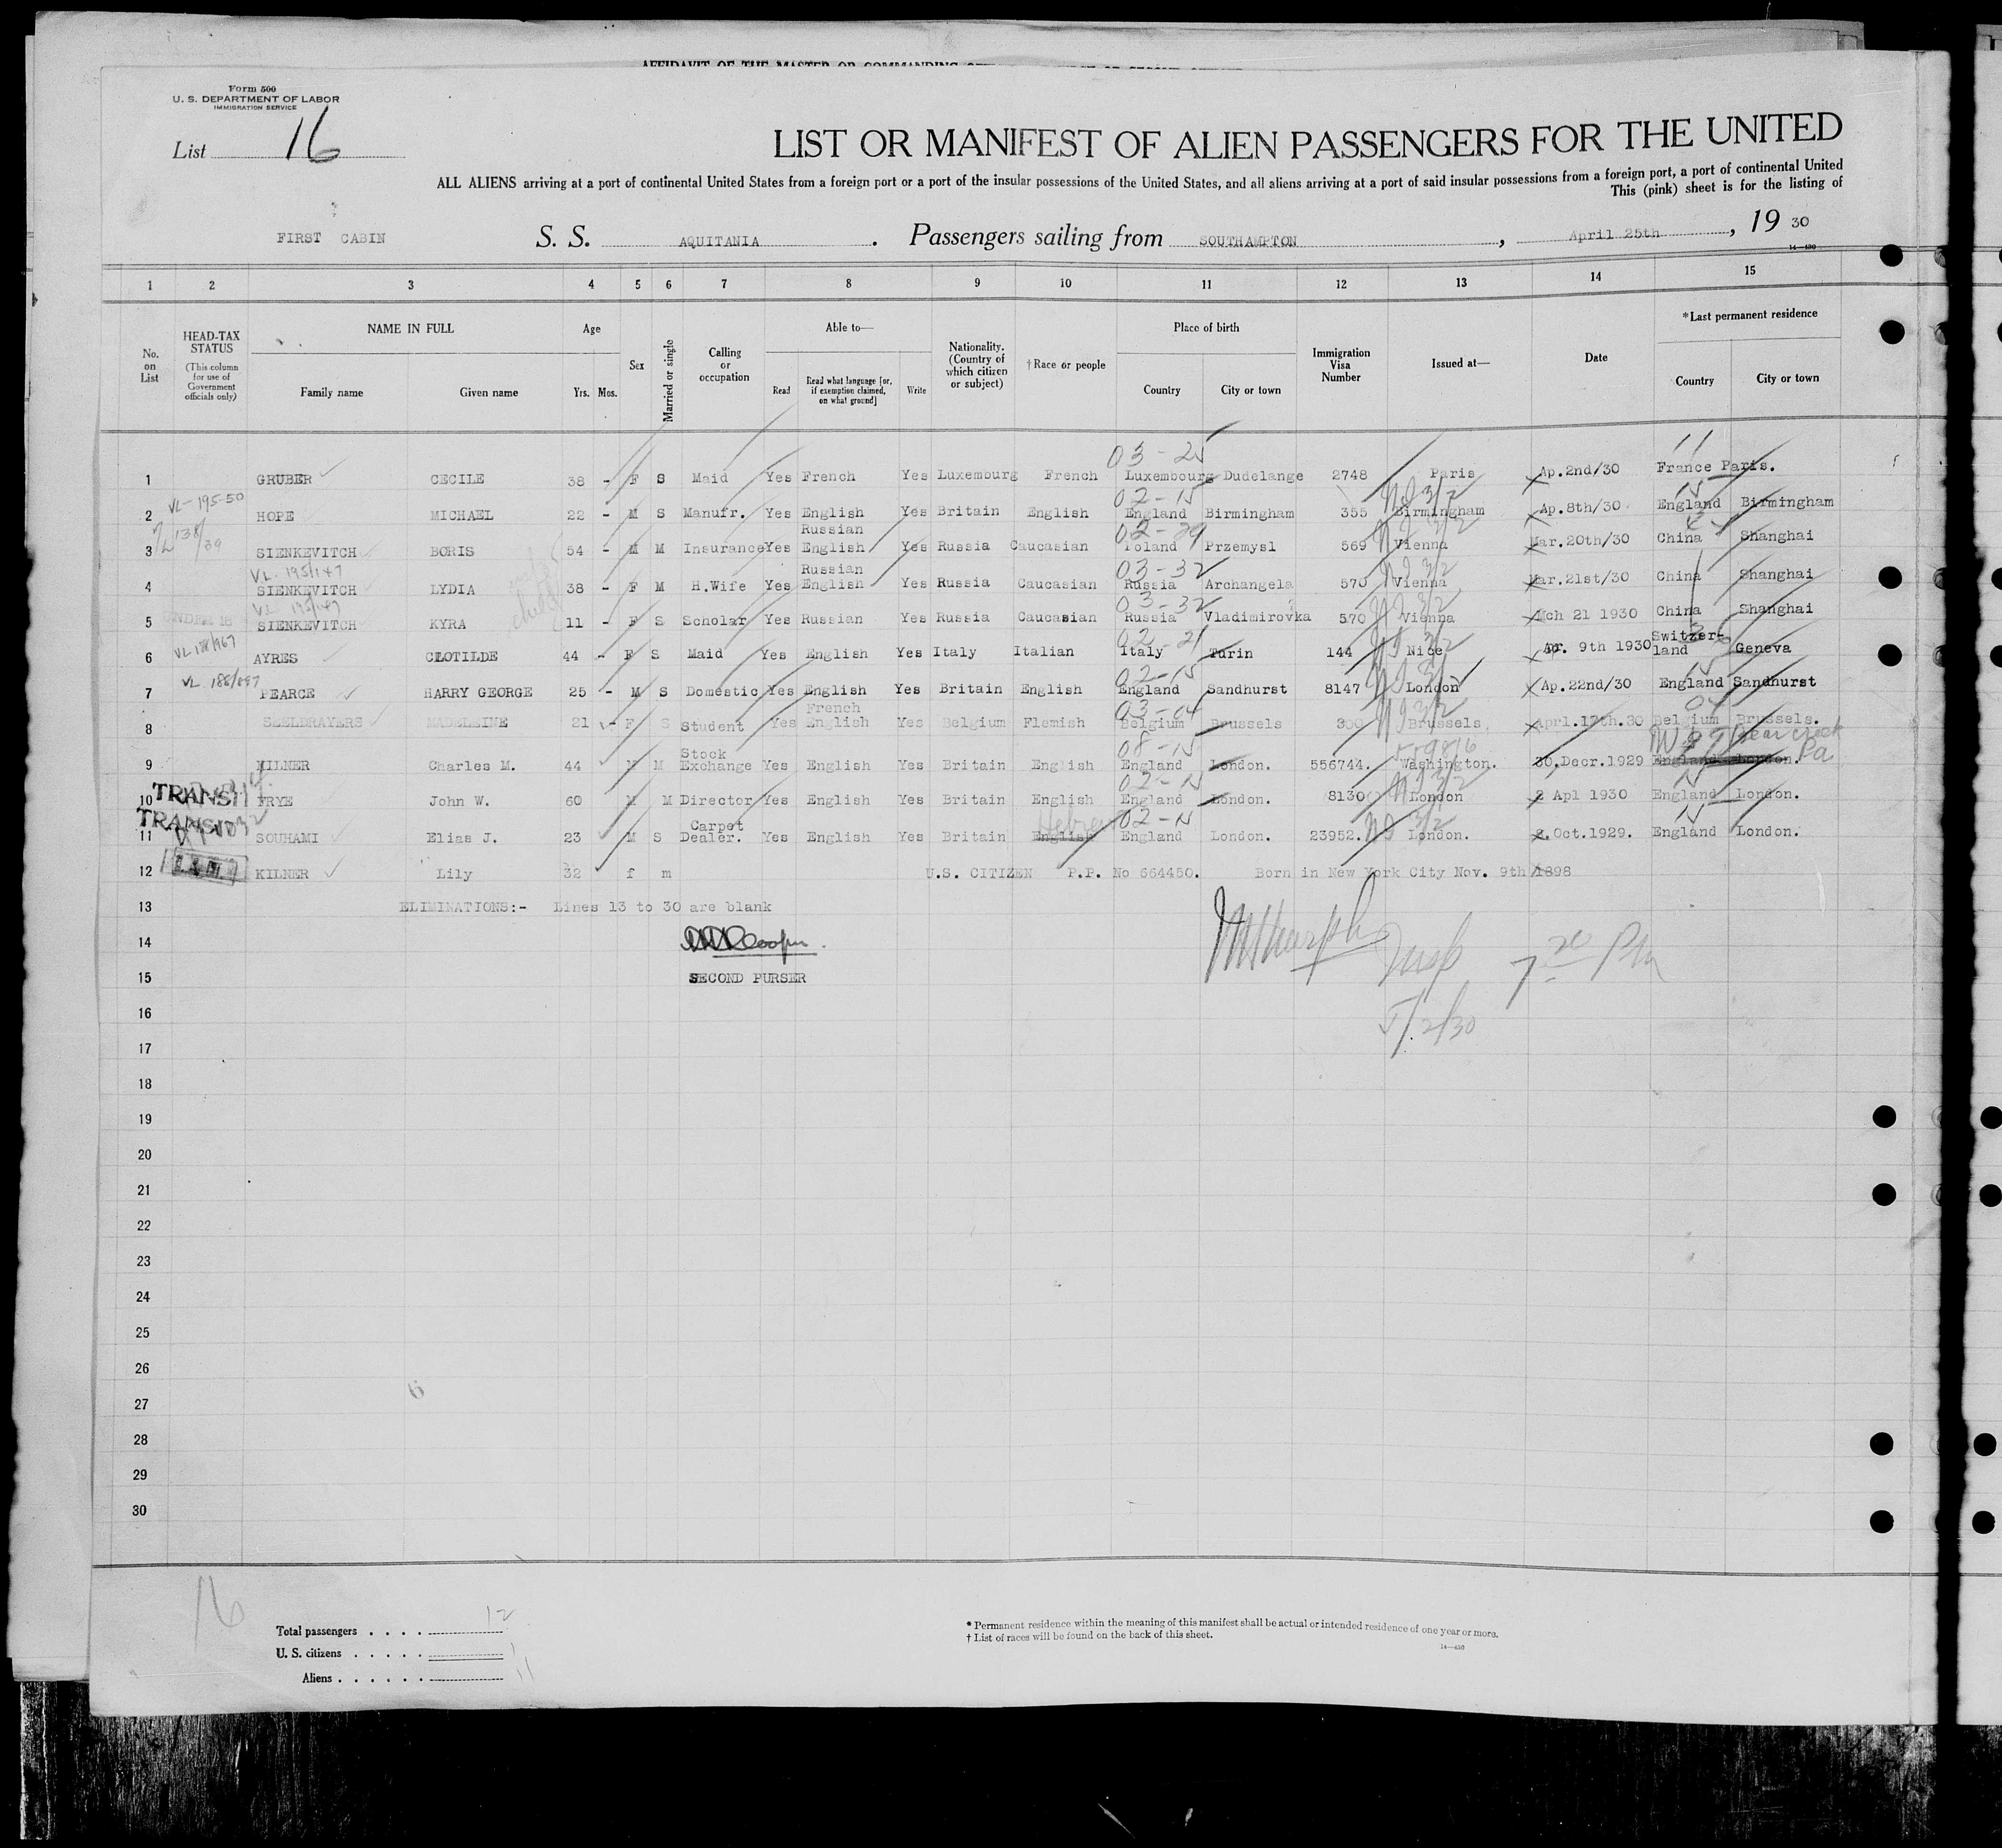 Form 500
U. S. DEPARTMENT OF LABOR
IMMIGRATION SERVICE
List 16
LIST OR MANIFEST OF ALIEN PASSENGERS FOR THE UNITED
ALL ALIENS arriving at a port of continental United States from a foreign port or a port of the insular possessions of the United States, and all aliens arriving at a port of said insular possessions from a foreign port, a port of continental United
This (pink) sheet is for the listing of
FIRST CABIN S. S. AQUITANIA . Passengers sailing from SOUTHAMPTON , April 25th , 19 30
14—430
1 2 3 4 5 6 7 8 9 10 11 12 13 14 15
No. on List
HEAD-TAX STATUS (This column for use of Government officials only)
NAME IN FULL
Family name Given name
Age
Yrs. Mos.
Sex
Married or single
Calling or occupation
Able to—
Read Read what language [or, if exemption claimed, on what ground] Write
Nationality. (Country of which citizen or subject)
†Race or people
Place of birth
Country City or town
Immigration Visa Number
Issued at—
Date
*Last permanent residence
Country City or town
03-25 11
1 GRUBER CECILE 38 - F S Maid Yes French Yes Luxembourg French Luxembourg Dudelange 2748 Paris Ap.2nd/30 France Paris.
VL-195-50 02-15
2 HOPE MICHAEL 22 - M S Manufr. Yes English Yes Britain English England Birmingham 355 Birmingham Ap.8th/30 England Birmingham
Russian
3 SIENKEVITCH BORIS 54 - M M Insurance Yes English Yes Russia Caucasian Poland Przemysl 569 Vienna Mar.20th/30 China Shanghai
VL. 195/147 Russian 03-32
4 SIENKEVITCH LYDIA 38 - F M H.Wife Yes English Yes Russia Caucasian Russia Archangela 570 Vienna Mar.21st/30 China Shanghai
VL 195/147 03-32
5 SIENKEVITCH KYRA 11 - F S Scholar Yes Russian Yes Russia Caucasian Russia Vladimirovka 570 Vienna Mch 21 1930 China Shanghai
02-21
6 AYRES CLOTILDE 44 - F S Maid Yes English Yes Italy Italian Italy Turin 144 Nice Apr. 9th 1930 Switzer-land Geneva
VL 188/897 02-15
7 PEARCE HARRY GEORGE 25 - M S Domestic Yes English Yes Britain English England Sandhurst 8147 London Ap.22nd/30 England Sandhurst
French 03-04 04
8 SEELDRAYERS MADELEINE 21 - F S Student Yes English Yes Belgium Flemish Belgium Brussels 300 Brussels. Aprl.17th.30 Belgium Brussels.
Stock 08-15 Bear Creek
9 KILNER Charles M. 44 M M Exchange Yes English Yes Britain English England London. 556744. Washington. 30.Decr.1929 England London. Pa
TRANSIT 02-15
10 FRYE John W. 60 M M Director Yes English Yes Britain English England London. 8130 London 2 Apl 1930 England London.
TRANSIT Carpet Hebrew
11 SOUHAMI Elias J. 23 M S Dealer. Yes English Yes Britain English England London. 23952. London. 2.Oct.1929. England London.
12 KILNER Lily 32 f m U.S. CITIZEN P.P. No 664450. Born in New York City Nov. 9th 1898
13 ELIMINATIONS:- Lines 13 to 30 are blank
14 Cooper.
15 SECOND PURSER
7 20 PM
16 5/2/30
17
18
19
20
21
22
23
24
25
26
27
28
29
30
16
Total passengers . . . . 12
U. S. citizens . . . . . 1
Aliens . . . . . . 11
* Permanent residence within the meaning of this manifest shall be actual or intended residence of one year or more.
† List of races will be found on the back of this sheet.
14—430